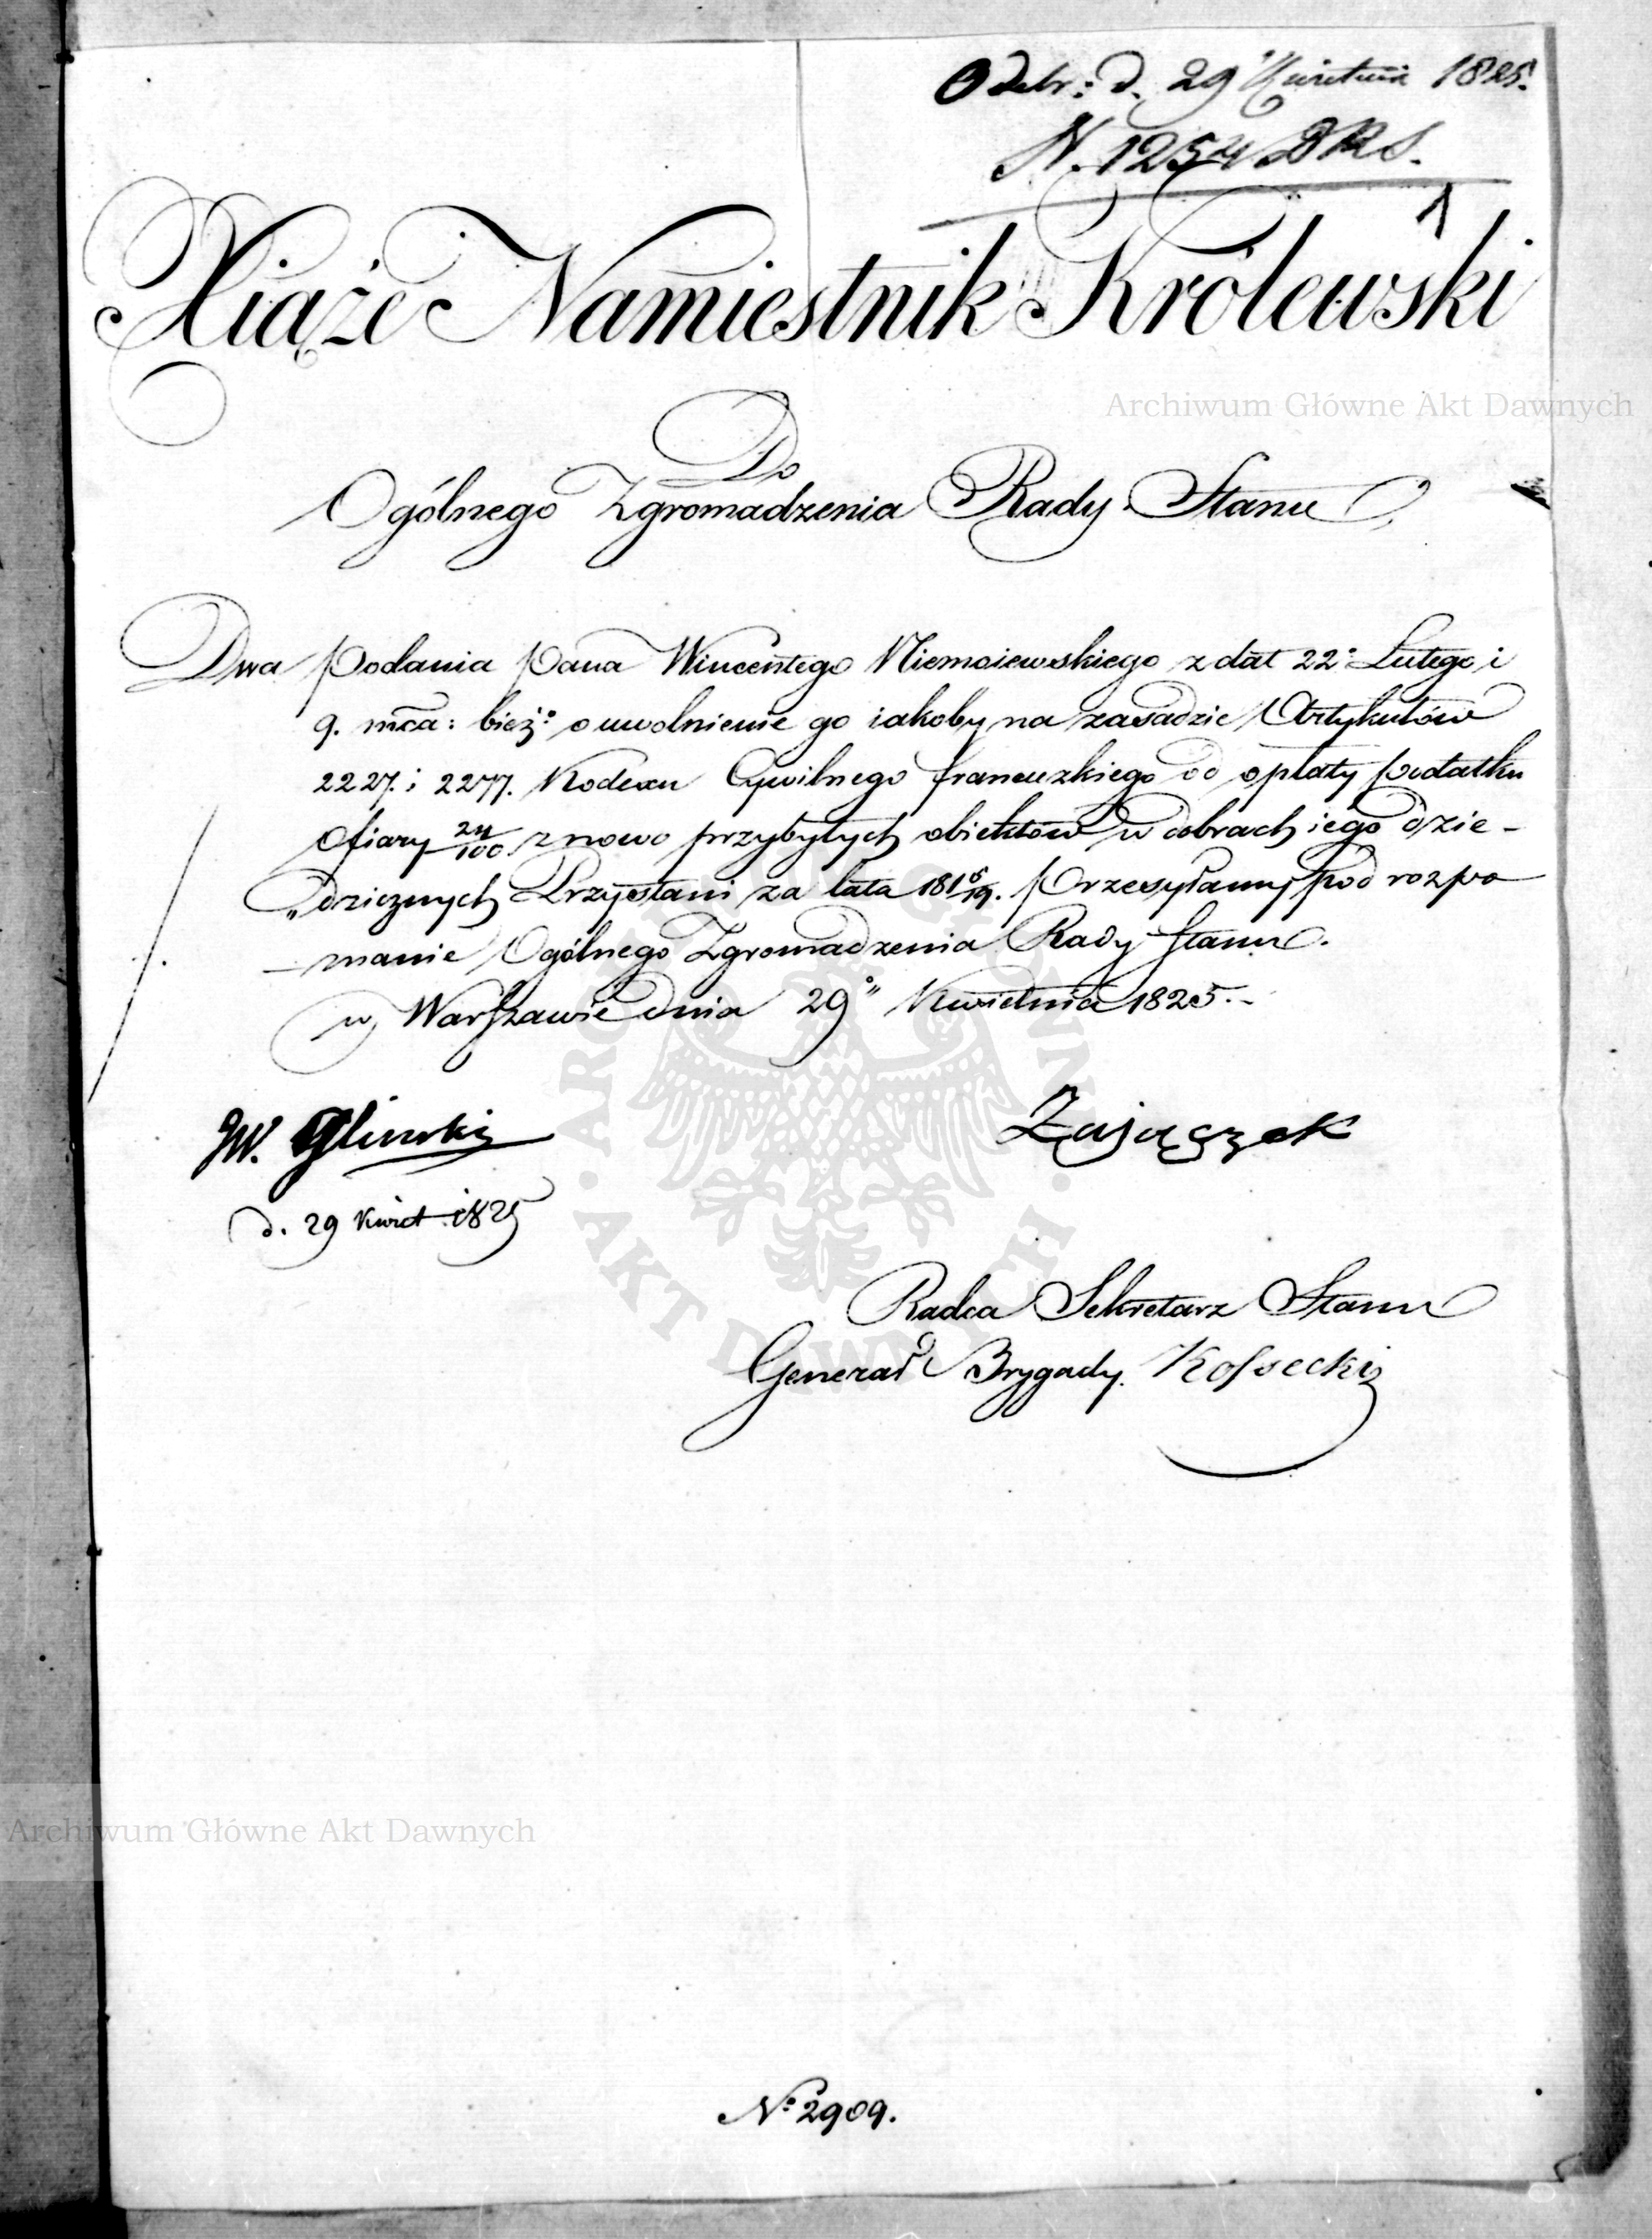 Odebr: d. 29 Kwietnia 1825.
N. 1254 DRS.
1
Xiąże Namiestnik Królewski
Archiwum Główne Akt Dawnych
Do
Ogólnego Zgromadzenia Rady Stanu
Dwa podania Pana Wincentego Niemoiewskiego z dat 22º Lutego i
9. mca: bież: o uwolnienie go iakoby na zasadzie Artykułów
2227. i 2277. Kodexu Cywilnego francuzkiego od opłaty podatku
ofiary 24/100 z nowo przybyłych obiektów w dobrach iego dzie-
„dzicznych Przystani za lata 181 /19. Przesyłamy pod rozpo
-znanie Ogólnego Zgromadzenia Rady Stanu.
w Warszawie dnia 29º" Kwietnia 1825.-
W. Gliński
Zajączek
d. 29 Kwiet. 1825
Radca Sekretarz Stanu
Generał Brygady Kossecki
ARCHIWUM GŁÓWNE AKT DAWNYCH
Archiwum Główne Akt Dawnych
Nº 2909.